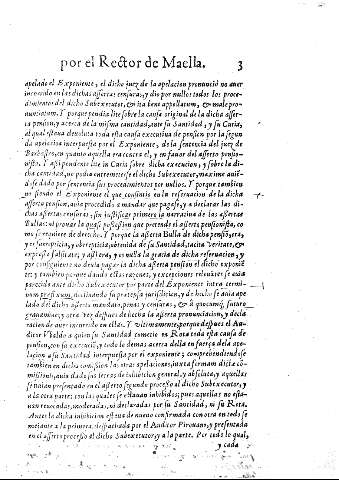 por el Rector de Maella. 3
apelado el Exponiente, el dicho juez de la apelacion pronunciò no auer
incurrido en las dichas assertas censuras, y dio por nullos todos los proce-
dimientos del dicho Subexecutor, & ita bene appellatum, & male pro-
nunciatum. Y porque pendia lite sobre la causa original de la dicha asser-
ta pension, y acerca de la misma cantidad, ante su Santidad, y su Curia,
al qual estaua deuoluta toda esta causa executiua de pension por la segun
da apelacion interpuesta por el Exponiente, de la sentencia del juez de
Barbastro, en quanto aquella era contra el, y en fauor del asserto pensio-
nista. Y assi pendente lite in Curia sobre dicha execucion, y sobre la di-
cha cantidad, no podia entremeterse el dicho Subexecutor, maxime auiē-
dose dado por sentencia sus procedimientos por nullos. Y porque tambien
no siendo el Exponiente el que consintio en la reseruacion de la dicha
asserta pension, auia procedido a mandar que pagasse, y a declarar las di-
chas assertas censuras, sin justificar primero la narratiua de las assertas
Bullas: ni prouar la quasi possession que pretende el asserto pensionista, co-
mo se requiere de derecho. Y porque la asserta Bulla de dicha pensiō, era,
y es surrepticia, y obrepticia, obtenida de su Santidad, tacita veritate, &
expressa falsitate; y assi era, y es nulla la gracia de dicha reseruacion, y
por consiguiente no deuia pagar la dicha asserta pension el dicho exponiē
te: y tambien porque dando estas razones, y excepciones releuātes se auia
parecido ante dicho Subexecutor por parte del Exponiente intra termi-
num præfixum, declinando su pretensa jurisdiccion, y de hecho se auia ape
lado del dicho asserto mandato, penas y censuras, & à quocumq; futuro
grauamine, y otra vez despues de hecha la asserta pronunciacion, y decla
racion de auer incurrido en ellas. Y vltimamente, porque despues el Au-
ditor Vbaldo a quien su Santidad cometio en Rota toda esta causa de
pension, con su execuciō, y todo lo demas acerca della en fuerça de la ape-
lacion a su Santidad interpuesta por el exponiente; comprehendiendose
tambien en dicha comission las otras apelaciones, iuxta formam dictæ co-
missionis, auia dado sus letras de inhibicion general, y absoluta, y aquellas
se auian presentado en el asserto segundo processo al dicho Subexecutor, y
a la otra parte; con las quales se estauan inhibidos; pues aquellas no esta-
uan reuocadas, moderadas, ni declaradas por su Santidad, ni su Rota.
Antes la dicha inhibicion estaua de nueuo confirmada con otra en todo se
mejante a la primera, despachada por el Auditor Pirouano, y presentada
en el asserto processo al dicho Subexecutor, y a la parte. Por todo lo qual,
y cada